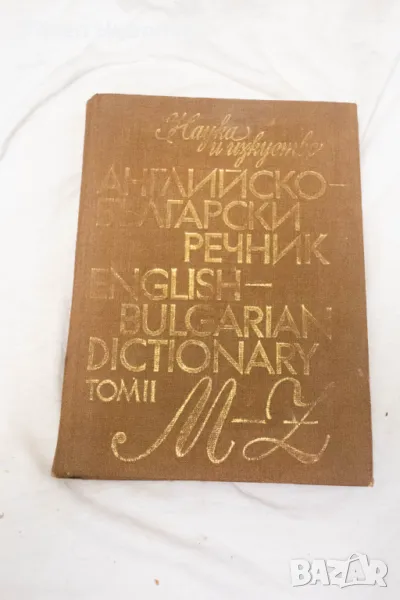 Наука
и изкуство
АНГЛИЙСКО-
БЪЛГАРСКИ
РЕЧНИК
ENGLISH-
BULGARIAN
DICTIONARY
ТОМ II
M-Z
BAZAR